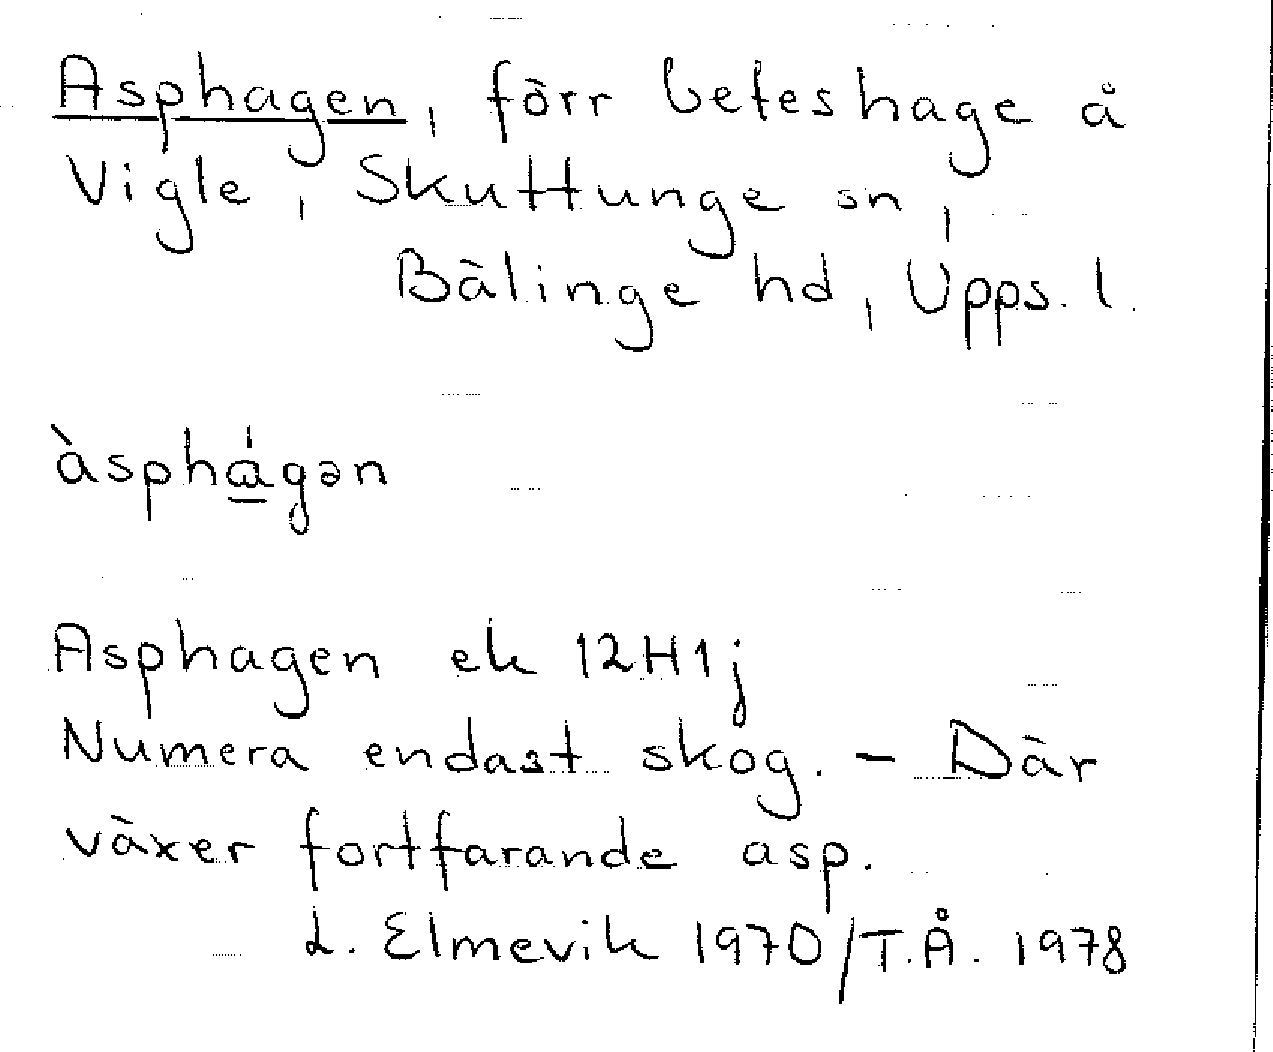 Asphagen, förr beteshage å
Vigle, Skuttunge sn,
Bälinge hd, Upps. l.
àsphágən
Asphagen ek 12H1j
Numera endast skog. – Där
växer fortfarande asp.
L. Elmevik 1970/T.Å. 1978